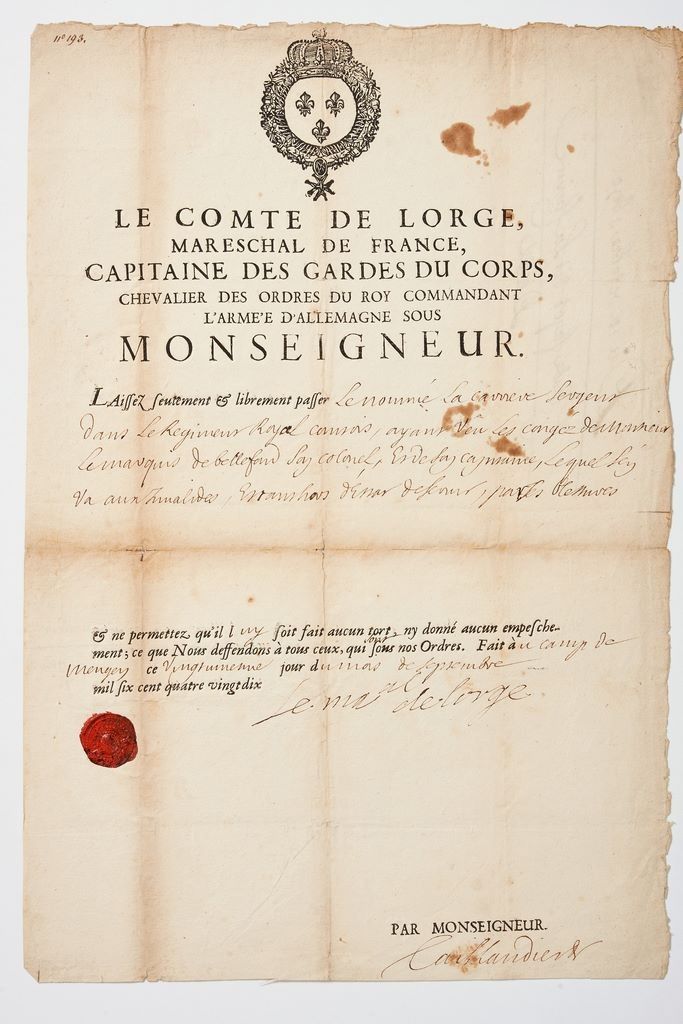 n° 193.
LE COMTE DE LORGE,
MARESCHAL DE FRANCE,
CAPITAINE DES GARDES DU CORPS,
CHEVALIER DES ORDRES DU ROY COMMANDANT
L'ARME'E D'ALLEMAGNE SOUS
MONSEIGNEUR.
LAissez seurement & librement passer Le nommé La
Dans Le Regiment Royal ayant Veu Les congez de Monsieur
Le marquis de bellefond Son colonel, Et de Son capitaine, Lequel S'en
Va aux Invalides,
& ne permettez qu'il luy soit fait aucun tort, ny donné aucun empesche-
ment; ce que Nous deffendons à tous ceux, qui sont sous nos Ordres. Fait au camp de
ce jour du mois de Septembre
mil six cent quatre vingt dix
Le mal de lorge
PAR MONSEIGNEUR.